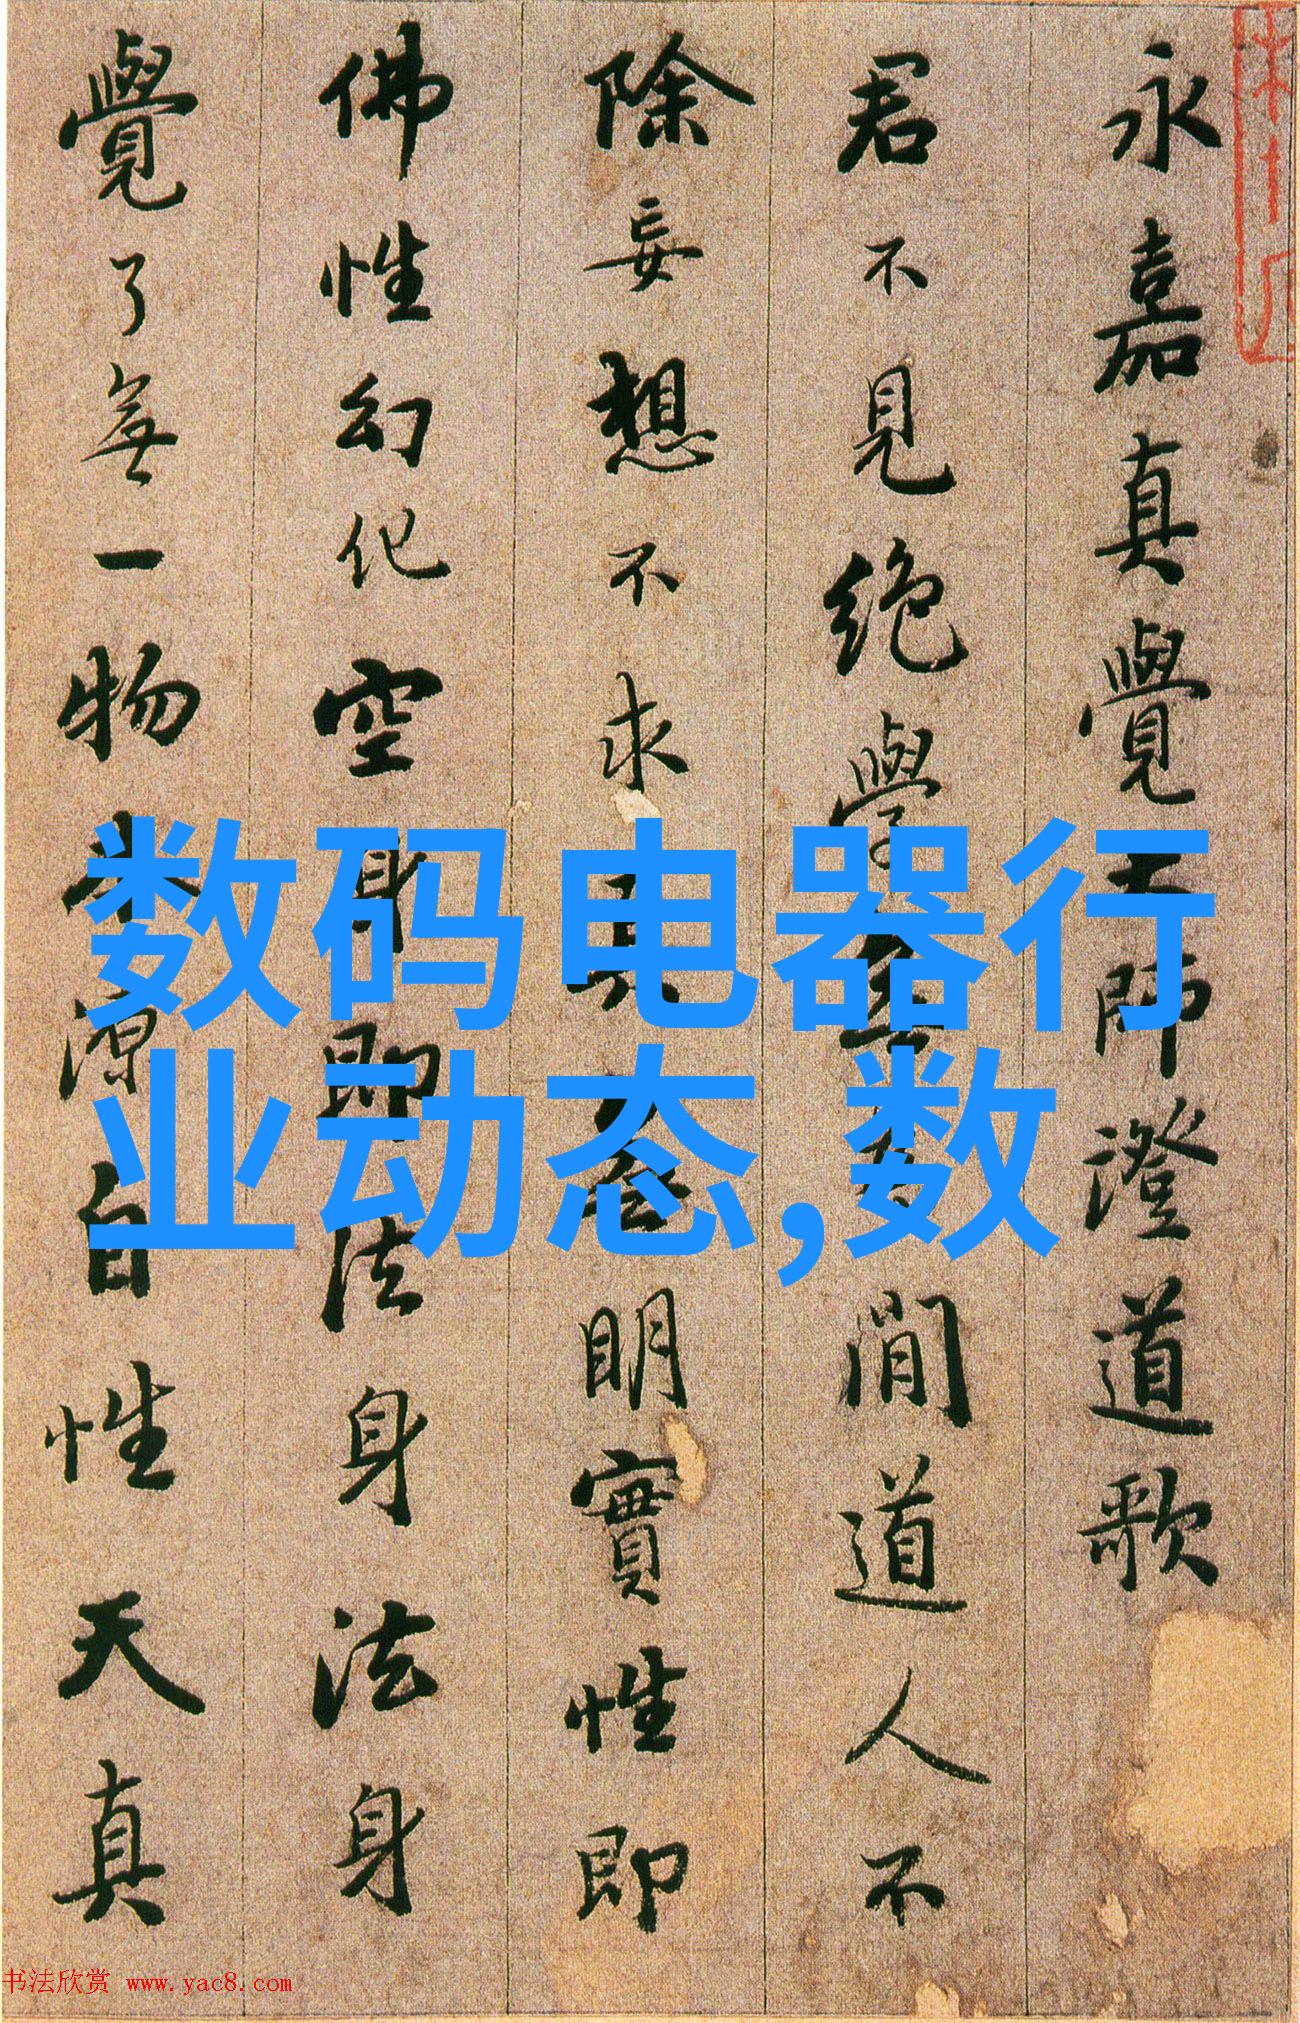 永嘉真覺大師澄道歌
君不見絶學閒道人不
除妄想不求明實性即
佛性幻化空身即法身法身
覺了無一物本源自性天真
数码电器行
业动态,数
书法欣赏 www.yac8.com